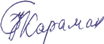 Караман